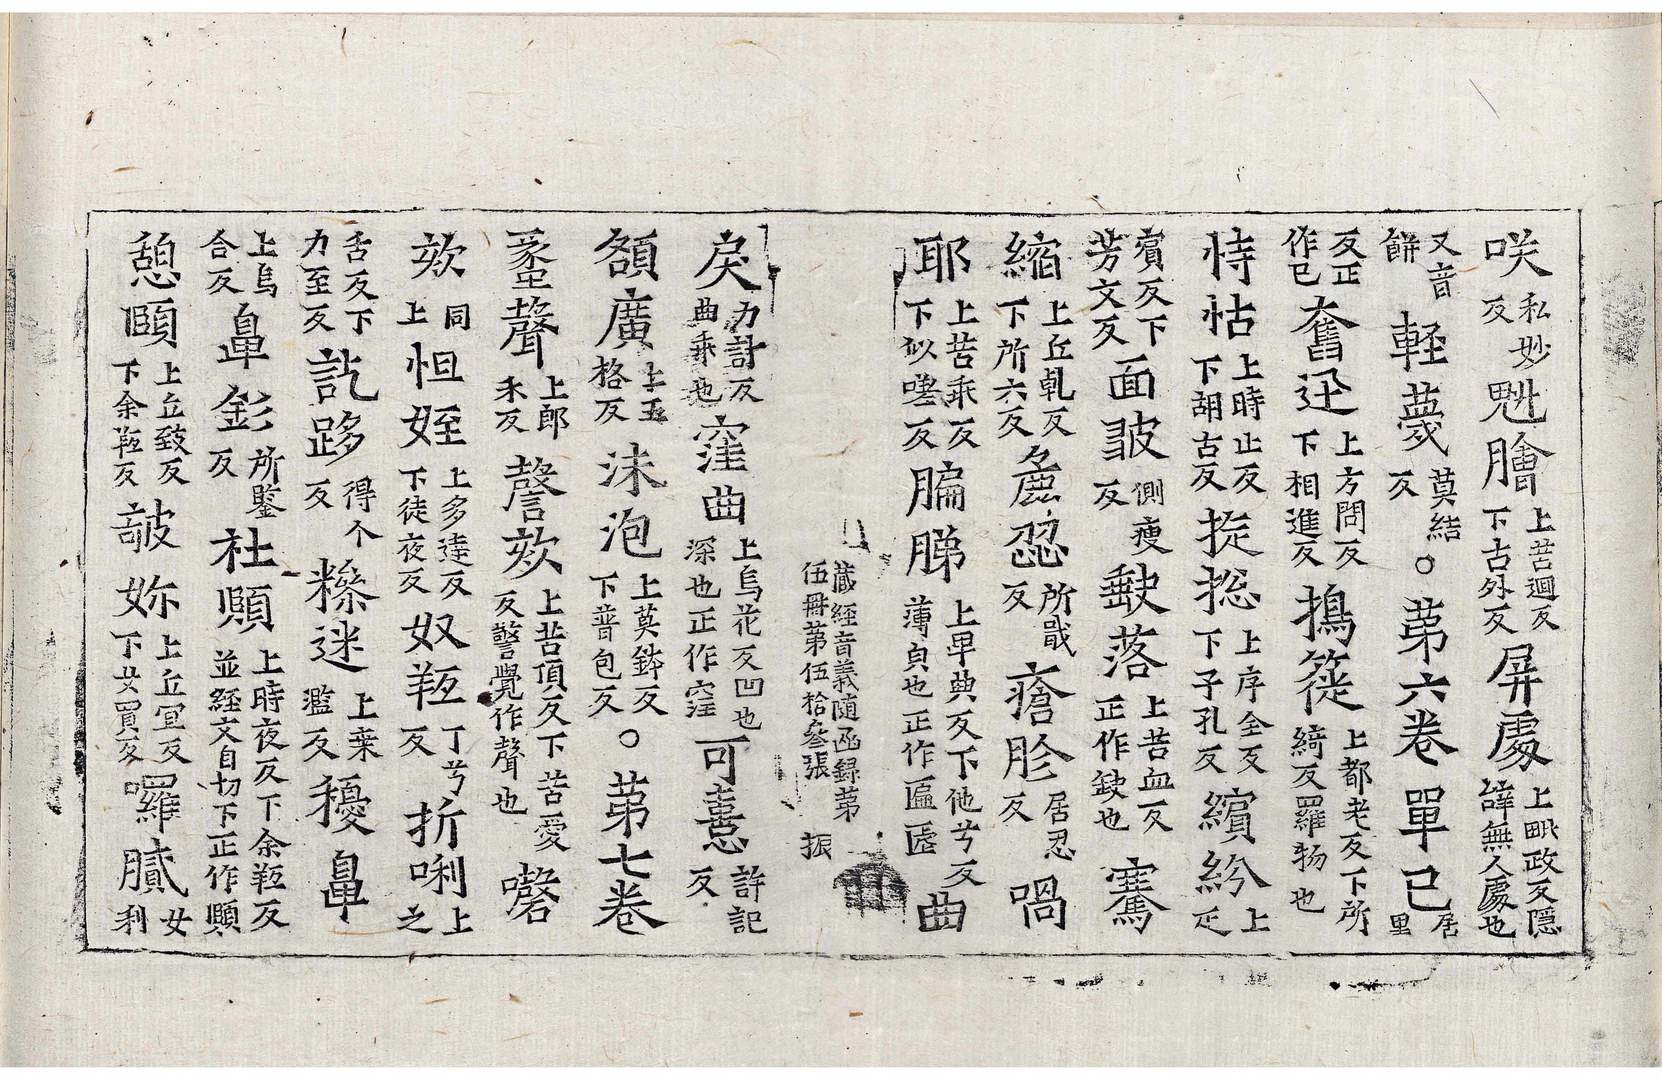 咲私妙反魁膾上苦迴反下古外反屏處上毗政反隱僻無人處也
又音餅輕蔑莫結反○苐六卷單已居里
反正作已奮迅上方問反下相進反搗簁上都老反下所綺反羅物也
恃怙上時止反下胡古反㨪揔上序全反下子孔反繽紛上疋
賓反下芳文反面皱側瘦反𡙇落上苦血反正作缺也騫
縮上丘乹反下所六反麁惢所戢反瘡胗居忍反喎
耶上苦乖反下似嗟反腨䏲上卑典反下他兮反薄皃也正作匾㔸曲
藏經音義隨函録苐伍冊苐伍拾叁張 振
戾力計反曲乖也窪曲上烏花反凹也深也正作窪可憙許記反
額廣上五格反沫泡上莫鉢反下普包反○苐七卷
蠡聲上郎禾反謦欬上苦頂反下苦愛反警覺作聲也嚳
欬同上怛姪上多達反下徒夜反奴羝丁兮反折唎上之
舌反下力至反訖跢得个反𥻦迷上桒濫反䅵鼻
上烏合反鼻釤所鑒反社𩓥上時夜反下余䩭反並經文自切下正作𩓥
憩頤上丘致反下余䩭反詖妳上丘宜反下女買反囉膩女利